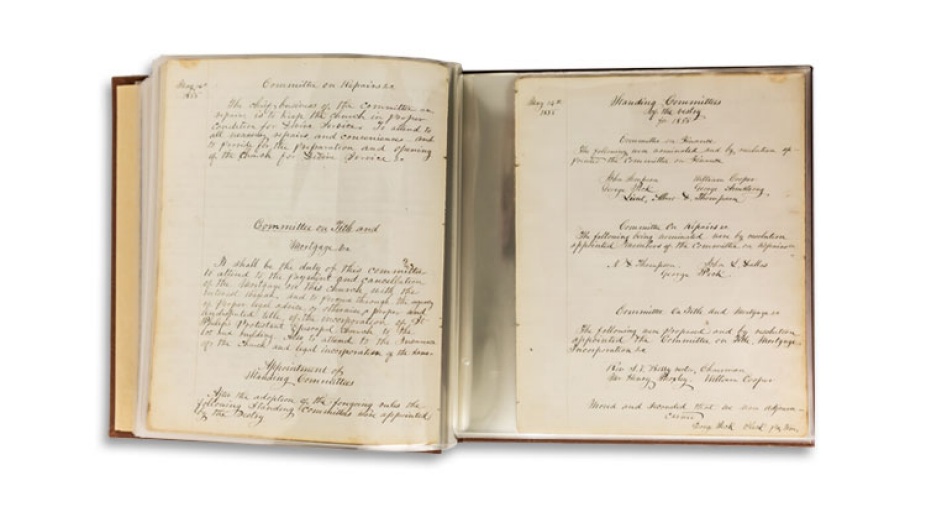 May 14th
1855
Committee on Repairs &c
The chief business of the Committee on
repairs is to keep the church in proper
condition for Divine Service. To attend to
all necessary repairs and conveniences and
to provide for the preparation and opening
of the Church for Divine Service &c
Committee on Title and
Mortgage &c
It shall be the duty of this committee
to attend to the payment and cancellation
of the Mortgage on this church with the
interest thereon, and to procure through the agency
of proper legal advice or otherwise a proper and
undisputed title, of the incorporation of St
Philips Protestant Episcopal Church to the
lot and building. Also to attend to the Insurance
of the Church and legal incorporation of the same
Appointment of
Standing Committees
After the adoption of the foregoing rules the
following Standing Committees were appointed
by the Vestry
May 14th
1855
Standing Committees
by the Vestry
for 1855
Committee on Finance
The following were nominated and by resolution of
the Committee on Finance
John Simpson William Cooper
George Peck George
Lieut, D. Thompson
Committee On Repairs &c
The following being nominated were by resolution
appointed members of the Committee on Repairs &c
N. D Thompson John S. Dallas
George Peck
Committee On Title And Mortgage &c
The following were proposed and by resolution
appointed the Committee on Title, Mortgage
Incorporation &c
Rev Chairman
Mr Henry William Cooper
Moved and Seconded that we now adjourn
Carried
Geo Peck Clerk